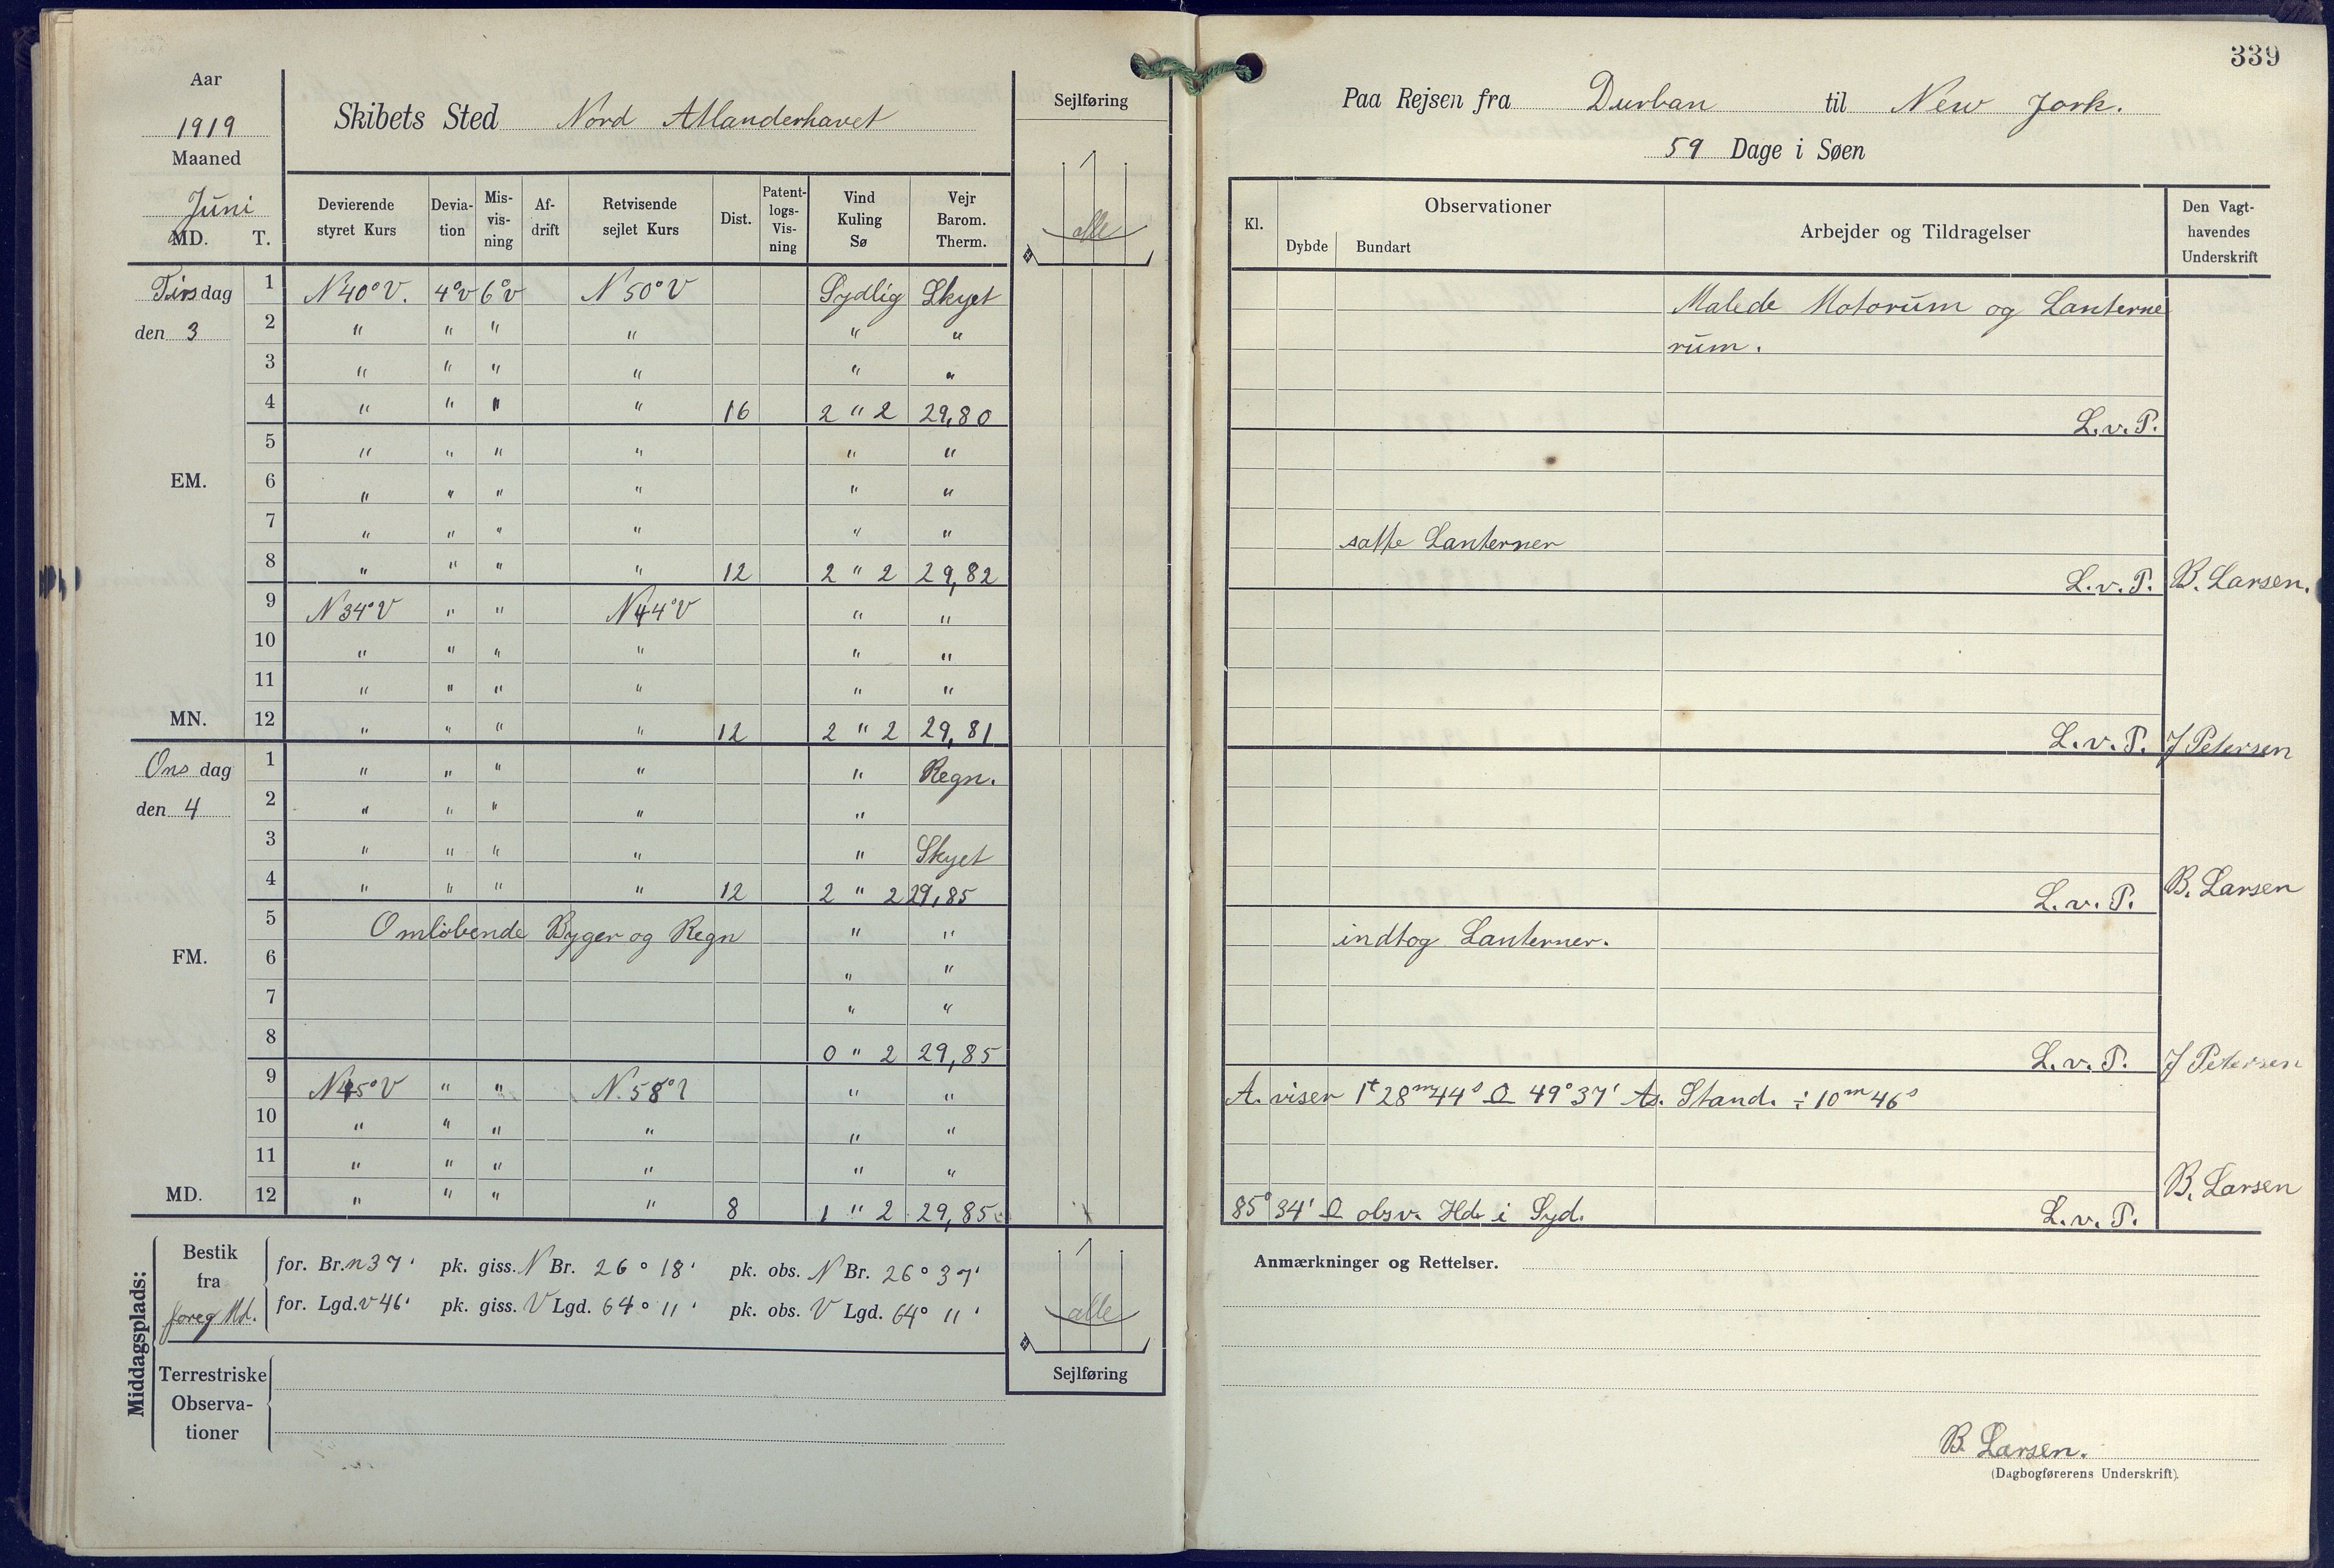 339
Aar
1919
Maaned
Juni
MD. T.
Skibets Sted Nord Atlanderhavet
Sejlføring
alle
Paa Rejsen fra Durban til New Jork.
59 Dage i Søen
Devierende styret Kurs | Devia-tion | Mis-vis-ning | Af-drift | Retvisende sejlet Kurs | Dist. | Patent-logs-Vis-ning | Vind Kuling Sø | Vejr Barom. Therm.
Kl. | Observationer | Dybde | Bundart | Arbejder og Tildragelser | Den Vagt-havendes Underskrift
Tirsdag 1 N40°V. 4°v 6°v N50°V Sydlig Skyet
Malede Motorüm og Lanterne
den 3 2 " " " " " "
rüm.
3 " " " " " "
4 " " " " 16 2 " 2 29,80
L.v.P.
5 " " " " " "
EM. 6 " " " " " "
7 " " " " " "
satte Lanterner
8 " " " " 12 2 " 2 29,82
L.v.P. B. Larsen.
9 N34°V " " N44°V " "
10 " " " " " "
11 " " " " " "
MN. 12 " " " " 12 2 " 2 29,81
L.v.P. J Petersen
Onsdag 1 " " " " " Regn.
den 4 2 " " " " "
3 " " " " " Skyet
4 " " " " 12 2 " 2 29,85
L.v.P. B. Larsen
5 Omløbende Byger og Regn " "
indtog Lanterner.
FM. 6 " "
7 " "
8 0 " 2 29,85
L.v.P. J Petersen
9 N45°V " " N.58° " "
A. viser 1t 28m 44s O 49°37' As. Stand. ÷ 10m 46s
10 " " " " " "
11 " " " " " "
MD. 12 " " " " 8 1 " 2 29,85
B. Larsen
85° 34' O obsv. Hd i Syd. L.v.P.
Middagsplads:
Bestik fra foreg Md.
for. Br. n 37' pk. giss. N Br. 26° 18' pk. obs. N Br. 26° 37'
for. Lgd. v 46' pk. giss. V Lgd. 64° 11' pk. obs. V Lgd. 64° 11'
Terrestriske
Observa-
tioner
alle
Sejlføring
Anmærkninger og Rettelser.
B. Larsen.
(Dagbogførerens Underskrift).